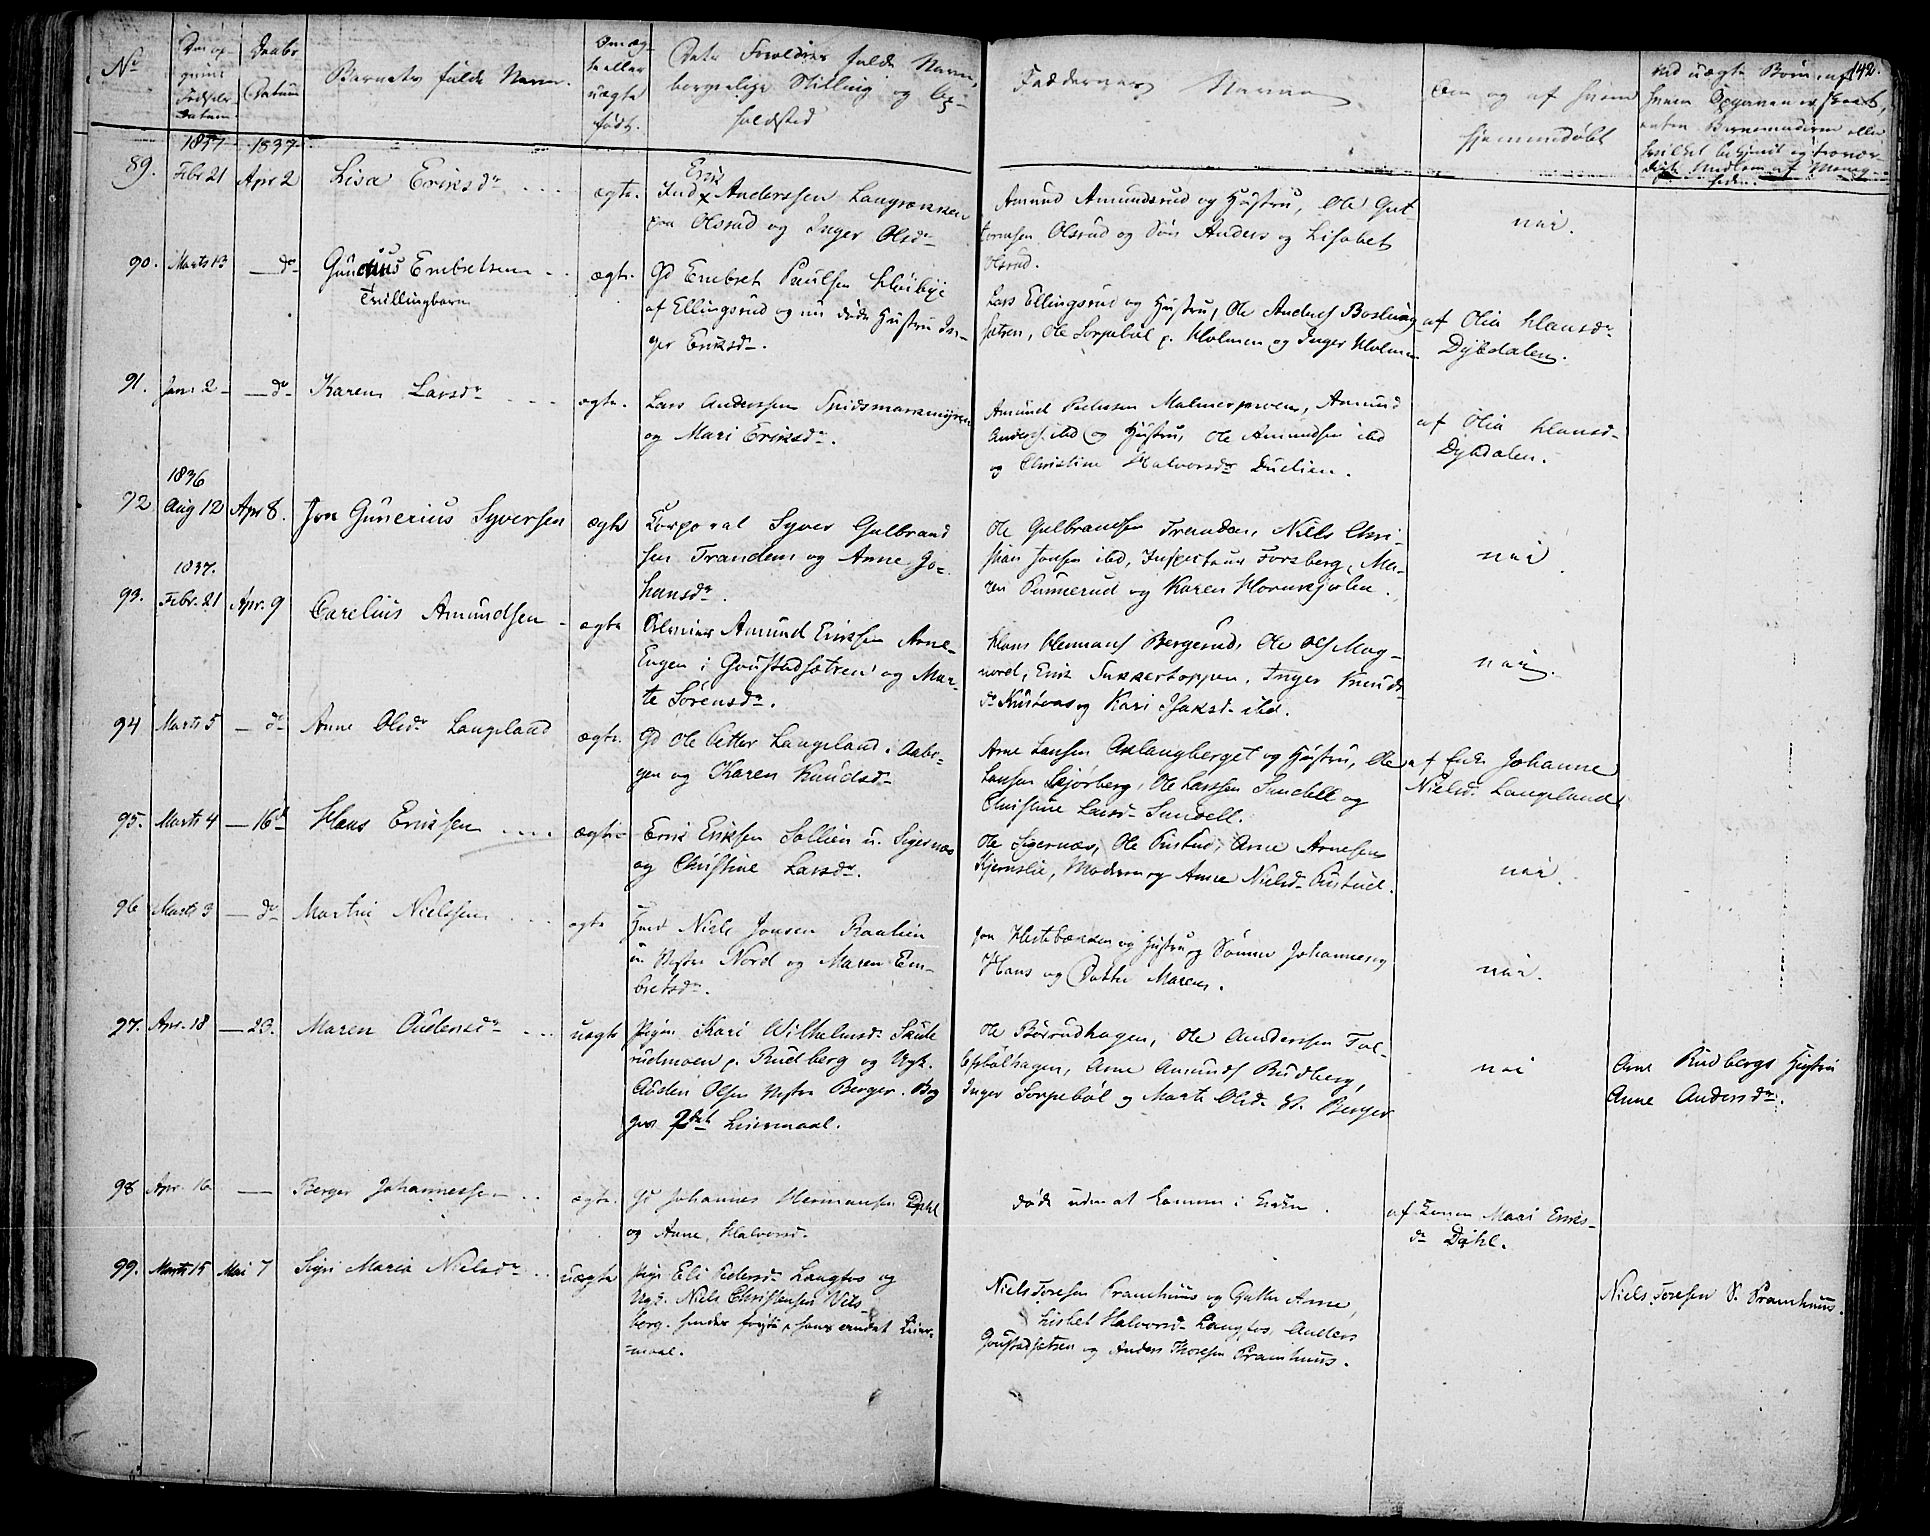 142.
No
Den op-
givne
Fødsels
Datum
Daabs
Datum
Barnets fulde Navn.
Om æg-
te eller
uægte
født.
Dets Forældres fulde Navn,
borgerlige Stilling og Op-
holdssted
Faddernes Navne
Om og af hvem
hjemmedøbt
Ved uægte Børn, af
hvem Opgaven er skeet,
enten Barnemoderen eller
1837 1837
89. Febr 21 Apr 2 Lisa Eriksdr ægte.
Erik
Ind Anderssen Langrækken
og Inger Olsdr
Amund Amundsrud og Hustru, Ole Gut-
tormsen Olsrud og Søn Anders og Lisabet
Olsrud.
nei.
90. Marts 13 — do Embretsen ægte
Trillingbarn
Gd Embret Paulsen Kløibye
af Ellingsrud og nu døde Hustru In-
ger Eriksdr.
Lars Ellingsrud og Hustru, Ole Anders
sætren, Ole Sorpebøl p. Holmen og Inger Holmen
af Olia Hansdr
Dybdalen.
91. Jan. 2 — do Karen Larsdr ægte.
Lars Anderssen Spidsmarkmyren
og Mari Eriksdr.
Amund Pedersen Malmerpæven, Amund
Anders. ibd og Hustru, Ole Amundsen ibd
og Christine Halvorsdr Duelien.
af Olia Hansd-
Dybdalen.
1836
92 Aug 12 Apr 8. Jon Gunerius Syversen ægte
Korporal Syver Gulbrand
sen Trandem og Anne Jo-
hansdr.
Ole Gulbrandsen Trandem, Niels Chri-
stian Jonsen ibd, Inspecteur Forsberg, Ma-
ren Punnerud og Karen Hornkjølen.
nei
1837.
93. Febr. 21 Apr. 9 Carelius Amundsen ægte
Amund Eriksen Arne-
Engen i Goustadsætren og Mar-
te Sørensdr.
Hans Hermans Bergerud, Ole Ols Mag-
nord, Erik Sukkertoppen, Inger Knuds
dr og Kari Isaksdr ibd.
nei.
94 Marts 5 — do Anne Olsdr Langeland ægte.
Gd Ole Petter Langeland i Aabo-
gen og Karen Knudsdr
Arne Larssen Aslangberget og Hustru, Ole
Larssen Skjørberg, Ole Larssen Sundell og
Christine Larsdr Sundell.
af Enke Johanne
Nielsd. Langeland
95. Marts 4 — 16de Hans Erikssen ægte
Erik Erikssen Sollien u. Sigernæs
og Christine Larsdr.
Ole Sigernæs, Ole Pustud, Arne Arnesen
Kjernslie, Moderen og Anne Nielsd. Pustud.
nei.
96 Marts 3 — do Martin Nielssen ægte
Huusd Niels Jonsen Raalien
u. Vestre Nord og Maren Em-
bretsdr.
Jon Hestebækken og Hustru og Sønner Johannes og
Hans og Datter Maren.
nei.
97. Apr. 18 — 23. Maren Audensdr uægte
Pigen Kari Wilhelmsd. Skule
rudmoen p. Rudberg og Ugk.
Auden Olsen Vestre Berger. Beg
ges 2det Leiermaal.
Ole Børrudhagen, Ole Anderssen Tol-
Arne Amunds Rudberg,
Inger Sorpebøl og Marte Olsd. V. Berger
nei
Arne Rudbergs Hustru
Anne Andersdr.
98 Apr. 16 — Berger Johannessen ægte.
Gd Johannes Hermansen Dyhl
og Anne Halvorsd.
døde uden at komme i Kirken.
af Konen Mari Eriks-
dr Dyhl.
99. Marts 15 Mai 7 Sigri Maria Nielsdr uægte
Pige Eli Pedersd. Langfos og
Ugd. Niels Christensen Wels
borg. hendes første, hans andet Leier-
maal.
Niels Toresen Pramhuus og Gutten Arne,
Lisbet Halvorsd. Langfos, Anders
Goustadsætren og Anders Thoresen Pramhuus.
Niels Toresen S. Pramhuus.